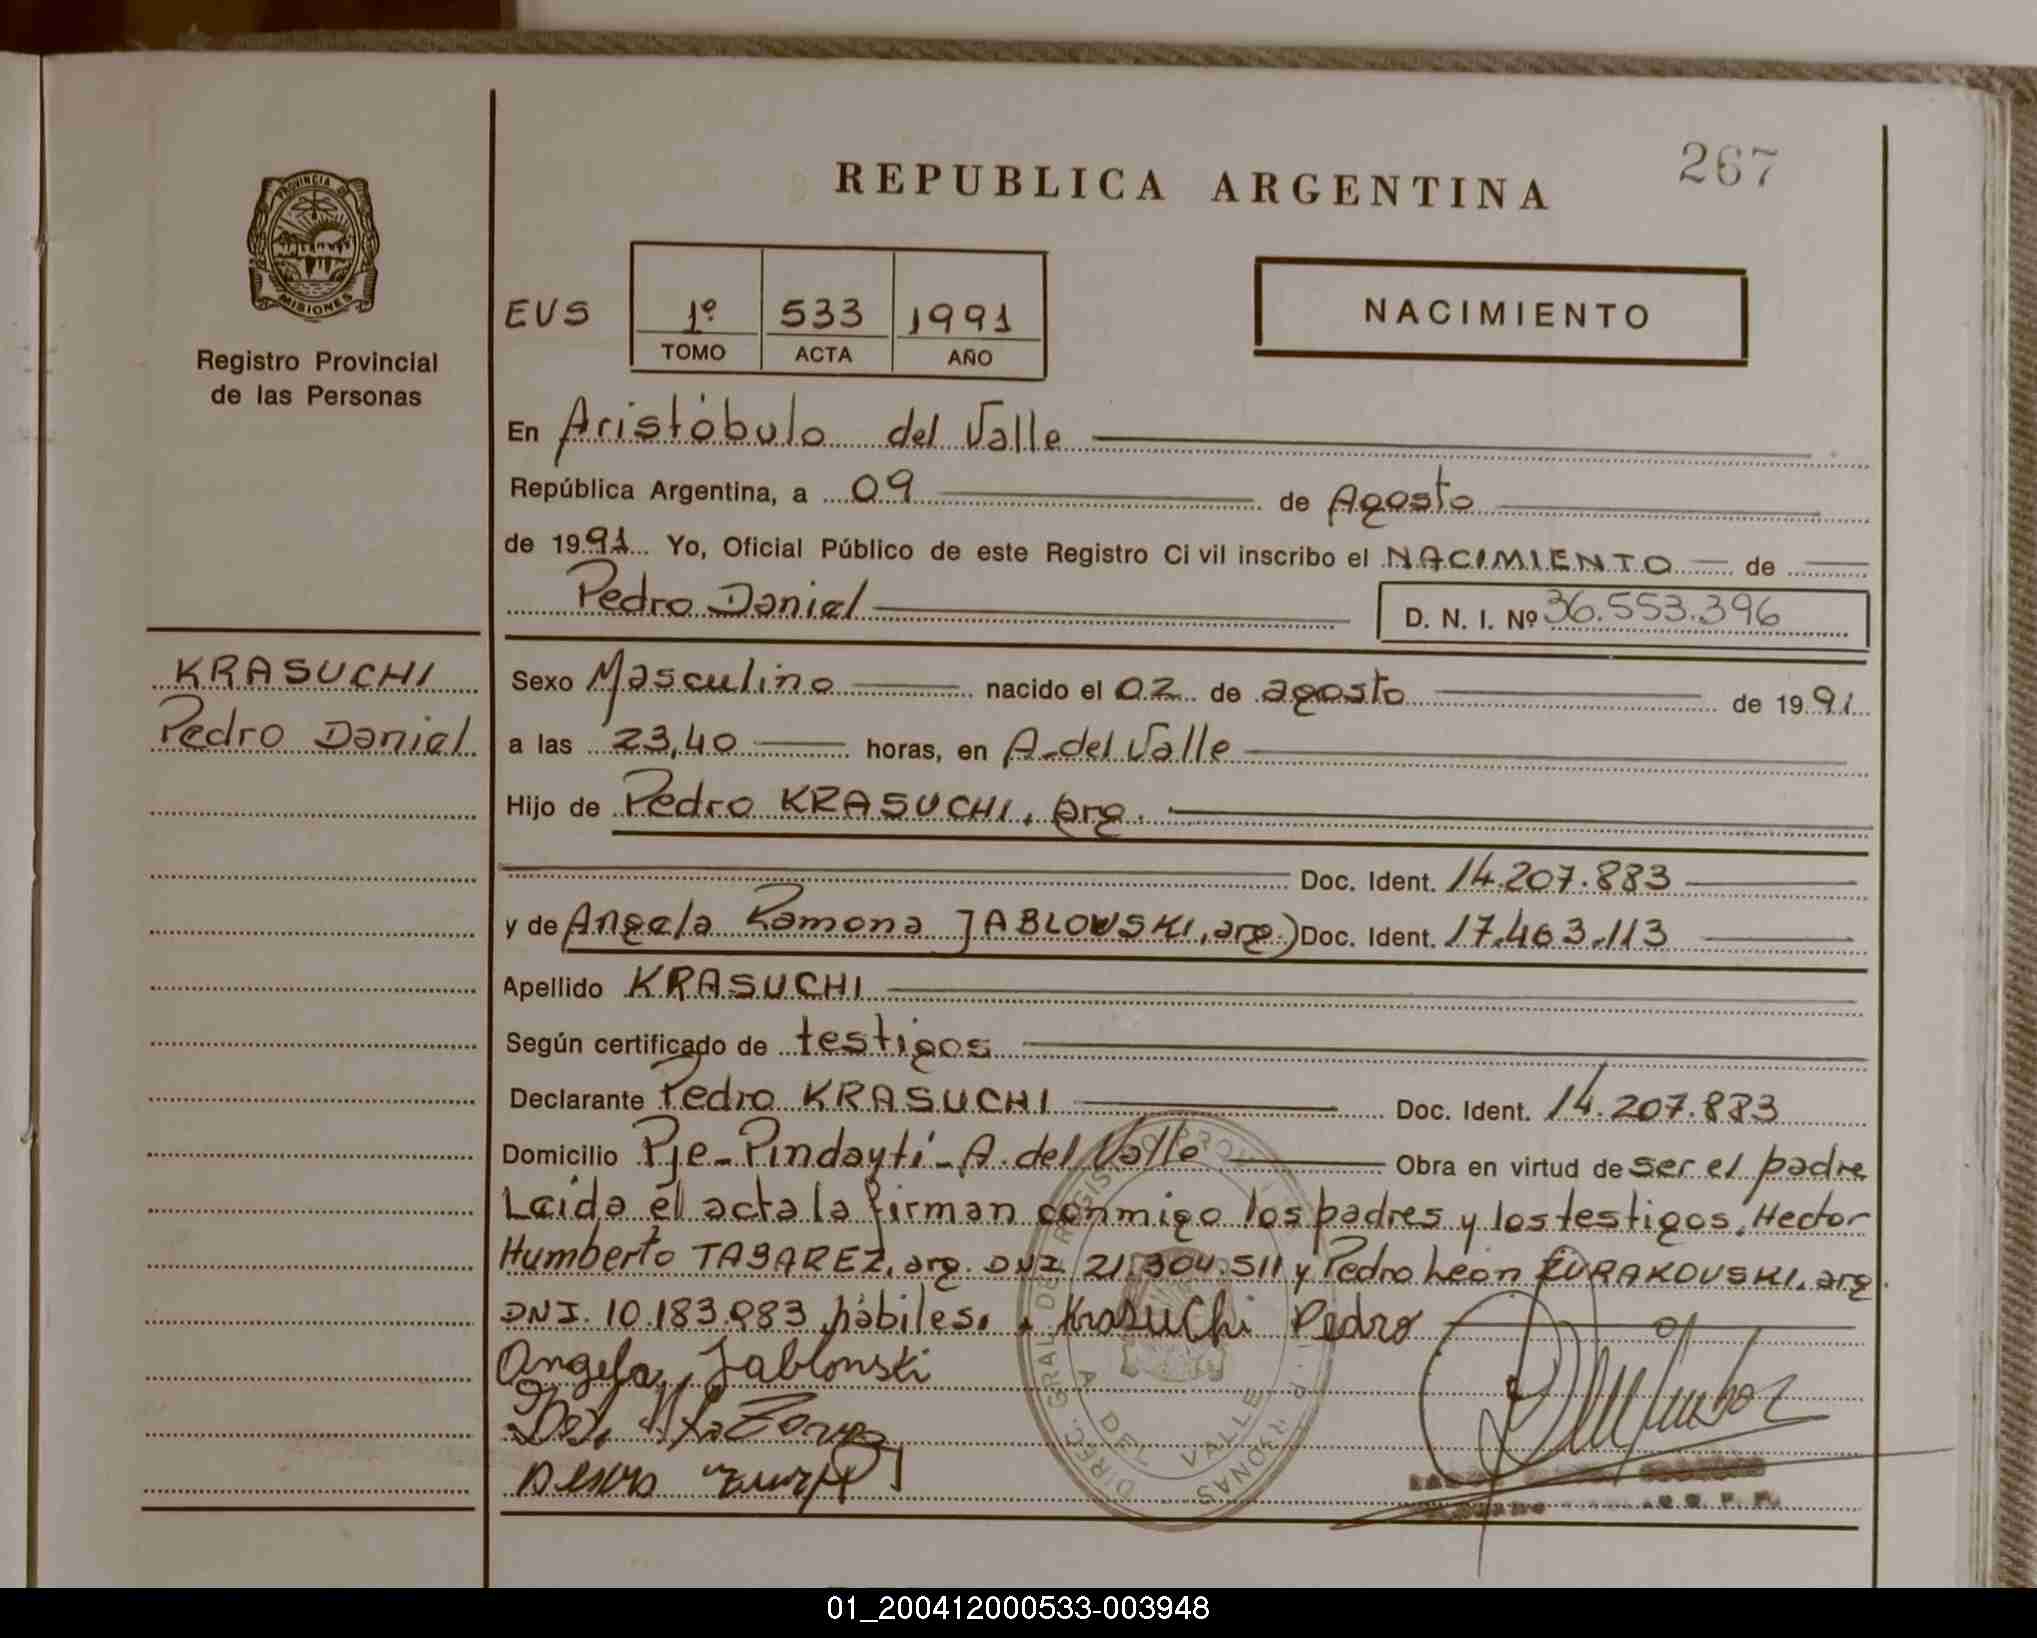 267
REPUBLICA ARGENTINA
PROVINCIA DE
MISIONES
Registro Provincial
de las Personas
EUS 1º 533 1991
TOMO ACTA AÑO
NACIMIENTO
En Aristóbulo del Valle
República Argentina, a 09 de Agosto
de 1991 Yo, Oficial Público de este Registro Civil inscribo el NACIMIENTO de
Pedro Daniel D. N. I. Nº 36.553.396
KRASUCHI
Pedro Daniel
Sexo Masculino nacido el 02 de agosto de 1991
a las 23,40 horas, en A. del Valle
Hijo de Pedro KRASUCHI, arg.
Doc. Ident. 14.207.883
y de Angela Ramona JABLOWSKI, arg.) Doc. Ident. 17.463.113
Apellido KRASUCHI
Según certificado de testigos
Declarante Pedro KRASUCHI Doc. Ident. 14.207.883
Domicilio Pje- Pindaytí - A. del Valle Obra en virtud de ser el padre
Leida el acta la firman conmigo los padres y los testigos, Hector
Humberto TABAREZ, arg. DNI 21.304.511 y Pedro León ZURAKOUSKI, arg.
DNI. 10.183.983 hábiles. Krasuchi Pedro
Angela Jablonski
A DEL VALLE
01_200412000533-003948